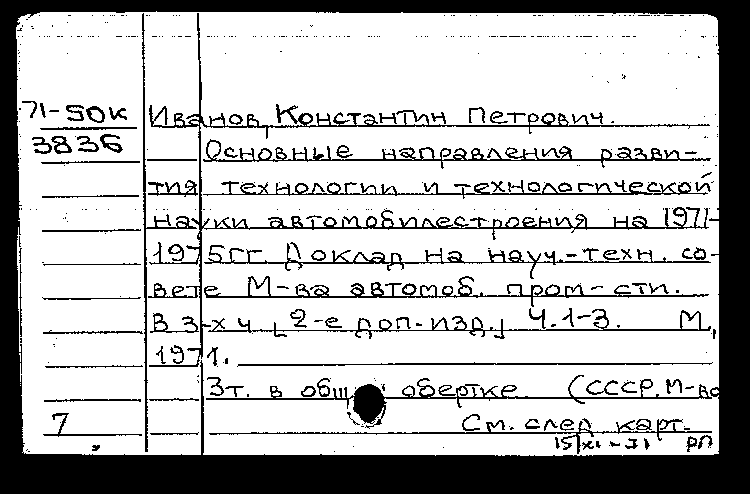 71-50к
3836
Иванов, Константин Петрович.
Основные направления разви-
тия технологии и технологической
науки автомобилестроения на 1971-
1975гг. Доклад на науч.-техн. со-
вете М-ва автомоб. пром-сти.
В 3-х ч [2-е доп. изд.] Ч.1-3. М.,
1971.
3т. в общ обертке. (СССР. М-во
7 См. след карт.
15/XI-71 РП